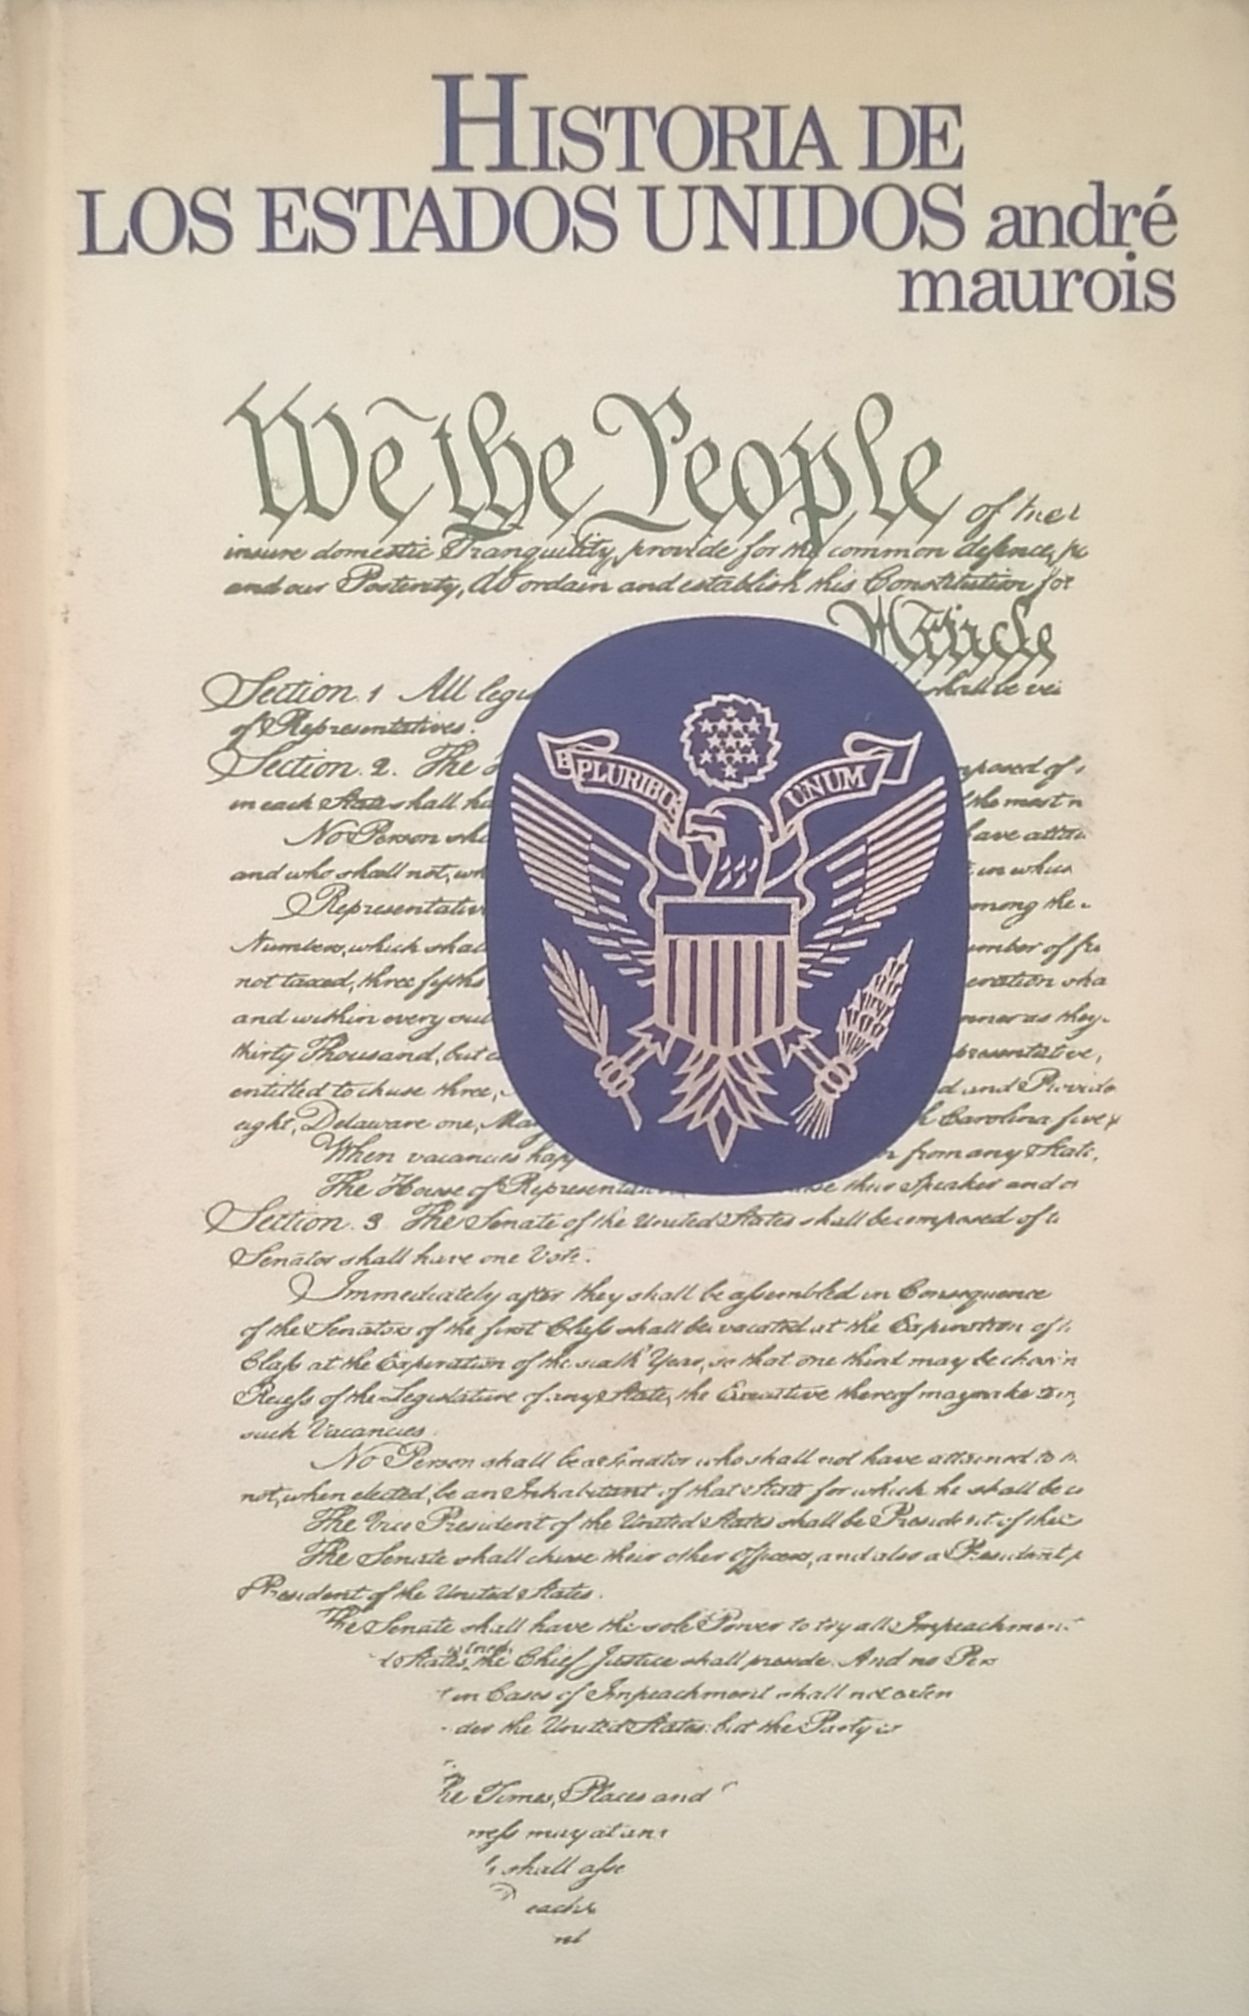 HISTORIA DE
LOS ESTADOS UNIDOS andré
maurois
We the People of the
insure domestic Tranquility, provide for the common defence,
and our Posterity, do ordain and establish this Constitution for
Article
Section. 1 All legis shall be ves
of Representatives.
Section. 2. The mposed of
in each State shall ha the most n
No Person sha have attai
and who shall not, wh in which
Representativ mong the
Numbers, which shal umber of fre
not taxed, three fifths eration sha
and within every sul nner as they
thirty Thousand, but e presentative,
entitled to chuse three, d and Provide
eight, Delaware one, Mar h Carolina five,
When vacancies happ n from any State,
The House of Representa se their Speaker and o
E PLURIBUS UNUM
Section. 3 The Senate of the United States shall be composed of t
Senator shall have one Vote.
Immediately after they shall be assembled in Consequence
of the Senators of the first Class shall be vacated at the Expiration of
Class at the Expiration of the sixth Year, so that one third may be chosen
Recess of the Legislature of any State, the Executive thereof may make
such Vacancies.
No Person shall be a Senator who shall not have attained to
not, when elected, be an Inhabitant of that State for which he shall be c
The Vice President of the United States shall be President of the
The Senate shall chuse their other Officers, and also a President p
President of the United States.
The Senate shall have the sole Power to try all Impeachment
d States is tried, the Chief Justice shall preside. And no Per
in Cases of Impeachment shall not exten
der the United States: but the Party
he Times, Places and
ress may at any
shall asse
each